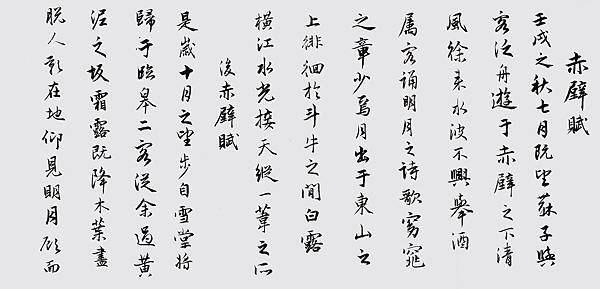 赤壁賦
壬戌之秋七月既望蘇子與
客泛舟遊于赤壁之下清
風徐来水波不興舉酒
属客誦明月之诗歌窈窕
之章少焉月出于東山之
上徘徊於斗牛之間白露
橫江水光接天縱一葦之所
後赤壁賦
是歲十月之望步自雪堂将
歸于臨皋二客從余過黄
泥之坂霜露既降木葉盡
脱人影在地仰見明月顾而